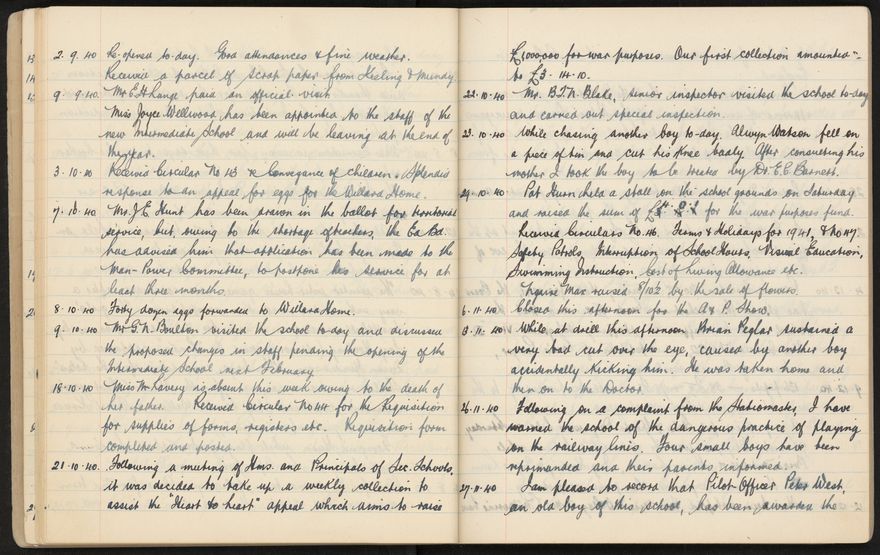 2. 9. 40 Re-opened to-day. Good attendances & fine weather.
Received a parcel of scrap paper from Keeling & Mundy
9. 9. 40 Mr E.H. Lange paid an official visit.
Miss Joyce Wellwood has been appointed to the staff of the
new Intermediate School and will be leaving at the end of
the year.
3. 10. 40 Received Circular No 43 re Conveyance of children. Splendid
response to an appeal for eggs for the Willard Home.
7. 10. 40 Mr. J.E. Hunt has been drawn in the ballot for territorial
service, but, owing to the shortage of teachers, the Ed Bd.
has advised him that application has been made to the
Man-Power Committee, to postpone his service for at
least three months.
8. 10. 40 Forty dozen eggs forwarded to Willard Home.
9. 10. 40 Mr G.N. Boulton visited the school to-day and discussed
the proposed changes in staff pending the opening of the
Intermediate School next February
18. 10. 40 Miss McLavery is absent this week owing to the death of
her father. Received Circular No 44 for the Requisition
for supplies of forms, registers etc. Requisition form
completed and posted.
21. 10. 40. Following a meeting of Hms. and Principals of Sec. Schools,
it was decided to take up a weekly collection to
assist the "Heart to heart" appeal which aims to raise
£1,000,000 for war purposes. Our first collection amounted
to £3 - 14 - 10.
22. 10. 40 Mr. B.T.N. Blake, senior inspector visited the school to-day
and carried out special inspection.
23. 10. 40 While chasing another boy to-day. Alwyn Watson fell on
a piece of tin and cut his knee badly. After consulting his
mother I took the boy to be treated by Dr. E.C. Barnett.
29. 10. 40 Pat Hurn held a stall on the school grounds on Saturday
and raised the sum of for the war purposes fund.
Received Circulars No. 46. Terms & Holidays for 1941, & No 47.
Safety Patrols, Interruption of School Hours, Visual Education,
Swimming Instruction, Cost of Living Allowance etc.
Max raised 8/10½ by the sale of flowers.
6. 11. 40 Closed this afternoon for the A & P. Show.
8. 11. 40 While at drill this afternoon Brian Peglar sustained a
very bad cut over the eye, caused by another boy
accidentally kicking him. He was taken home and
then on to the Doctor
26. 11. 40 Following on a complaint from the Stationmaster, I have
warned the school of the dangerous practice of playing
on the railway lines. Four small boys have been
reprimanded and their parents informed.
27. 11. 40 I am pleased to record that Pilot Officer Peter West,
an old boy of this school, has been awarded the